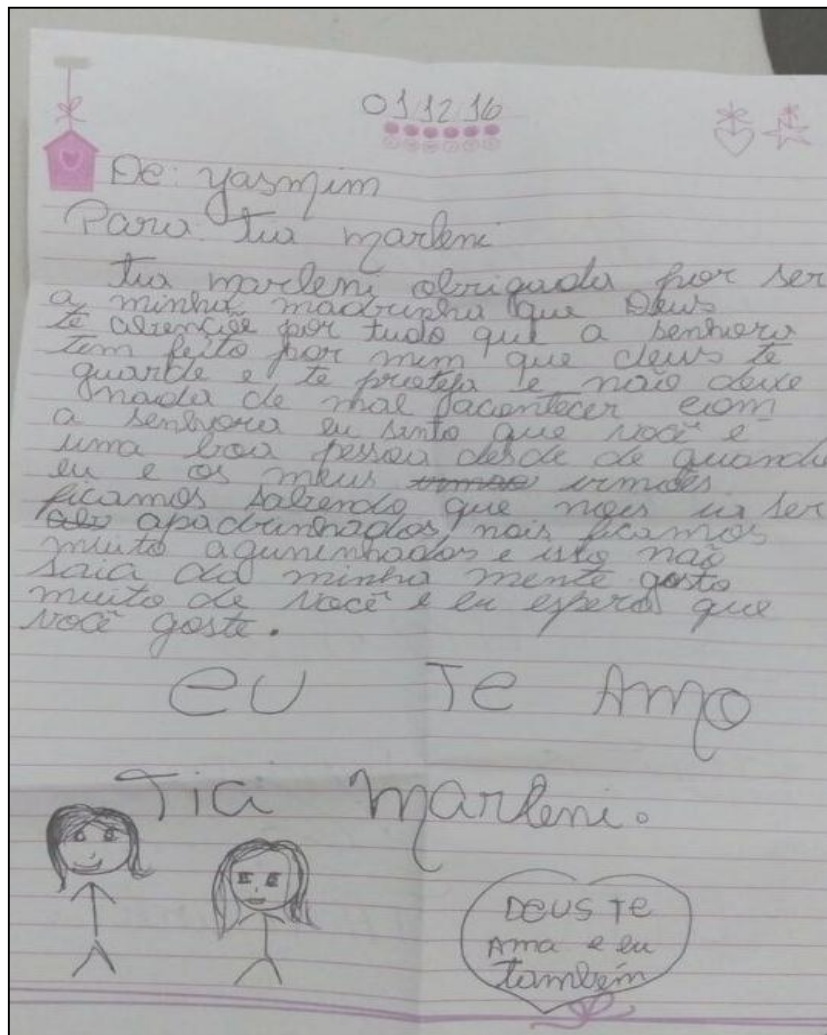 01 12 16
De: yasmim
Para: tia marleni
tia marleni obrigada por ser
a minha madrinha que Deus
te abençõe por tudo que a senhora
tem feito por mim que deus te
guarde e te proteja e não deixe
nada de mal acontecer com
a senhora eu sinto que você é
uma boa pessoa desde de quando
eu e os meus irmões
ficamos sabendo que nois ia ser
apadrinhados, nois ficamos
muito e isto não
saia da minha mente gosto
muito de você e eu espero que
você goste.
EU TE AMO
Tia Marleni.
DEUS TE
AMA e eu
também